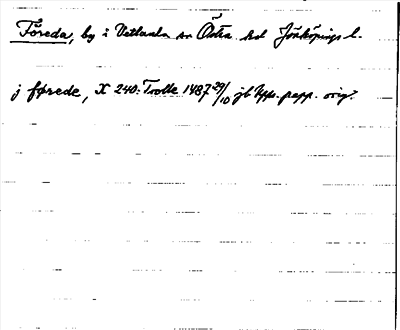 Föreda, by i Vetlanda sn Östra hd Jönköpings l.
j førede, X 240: Trolle 1487 29/10 jb Upps. papp. orig.